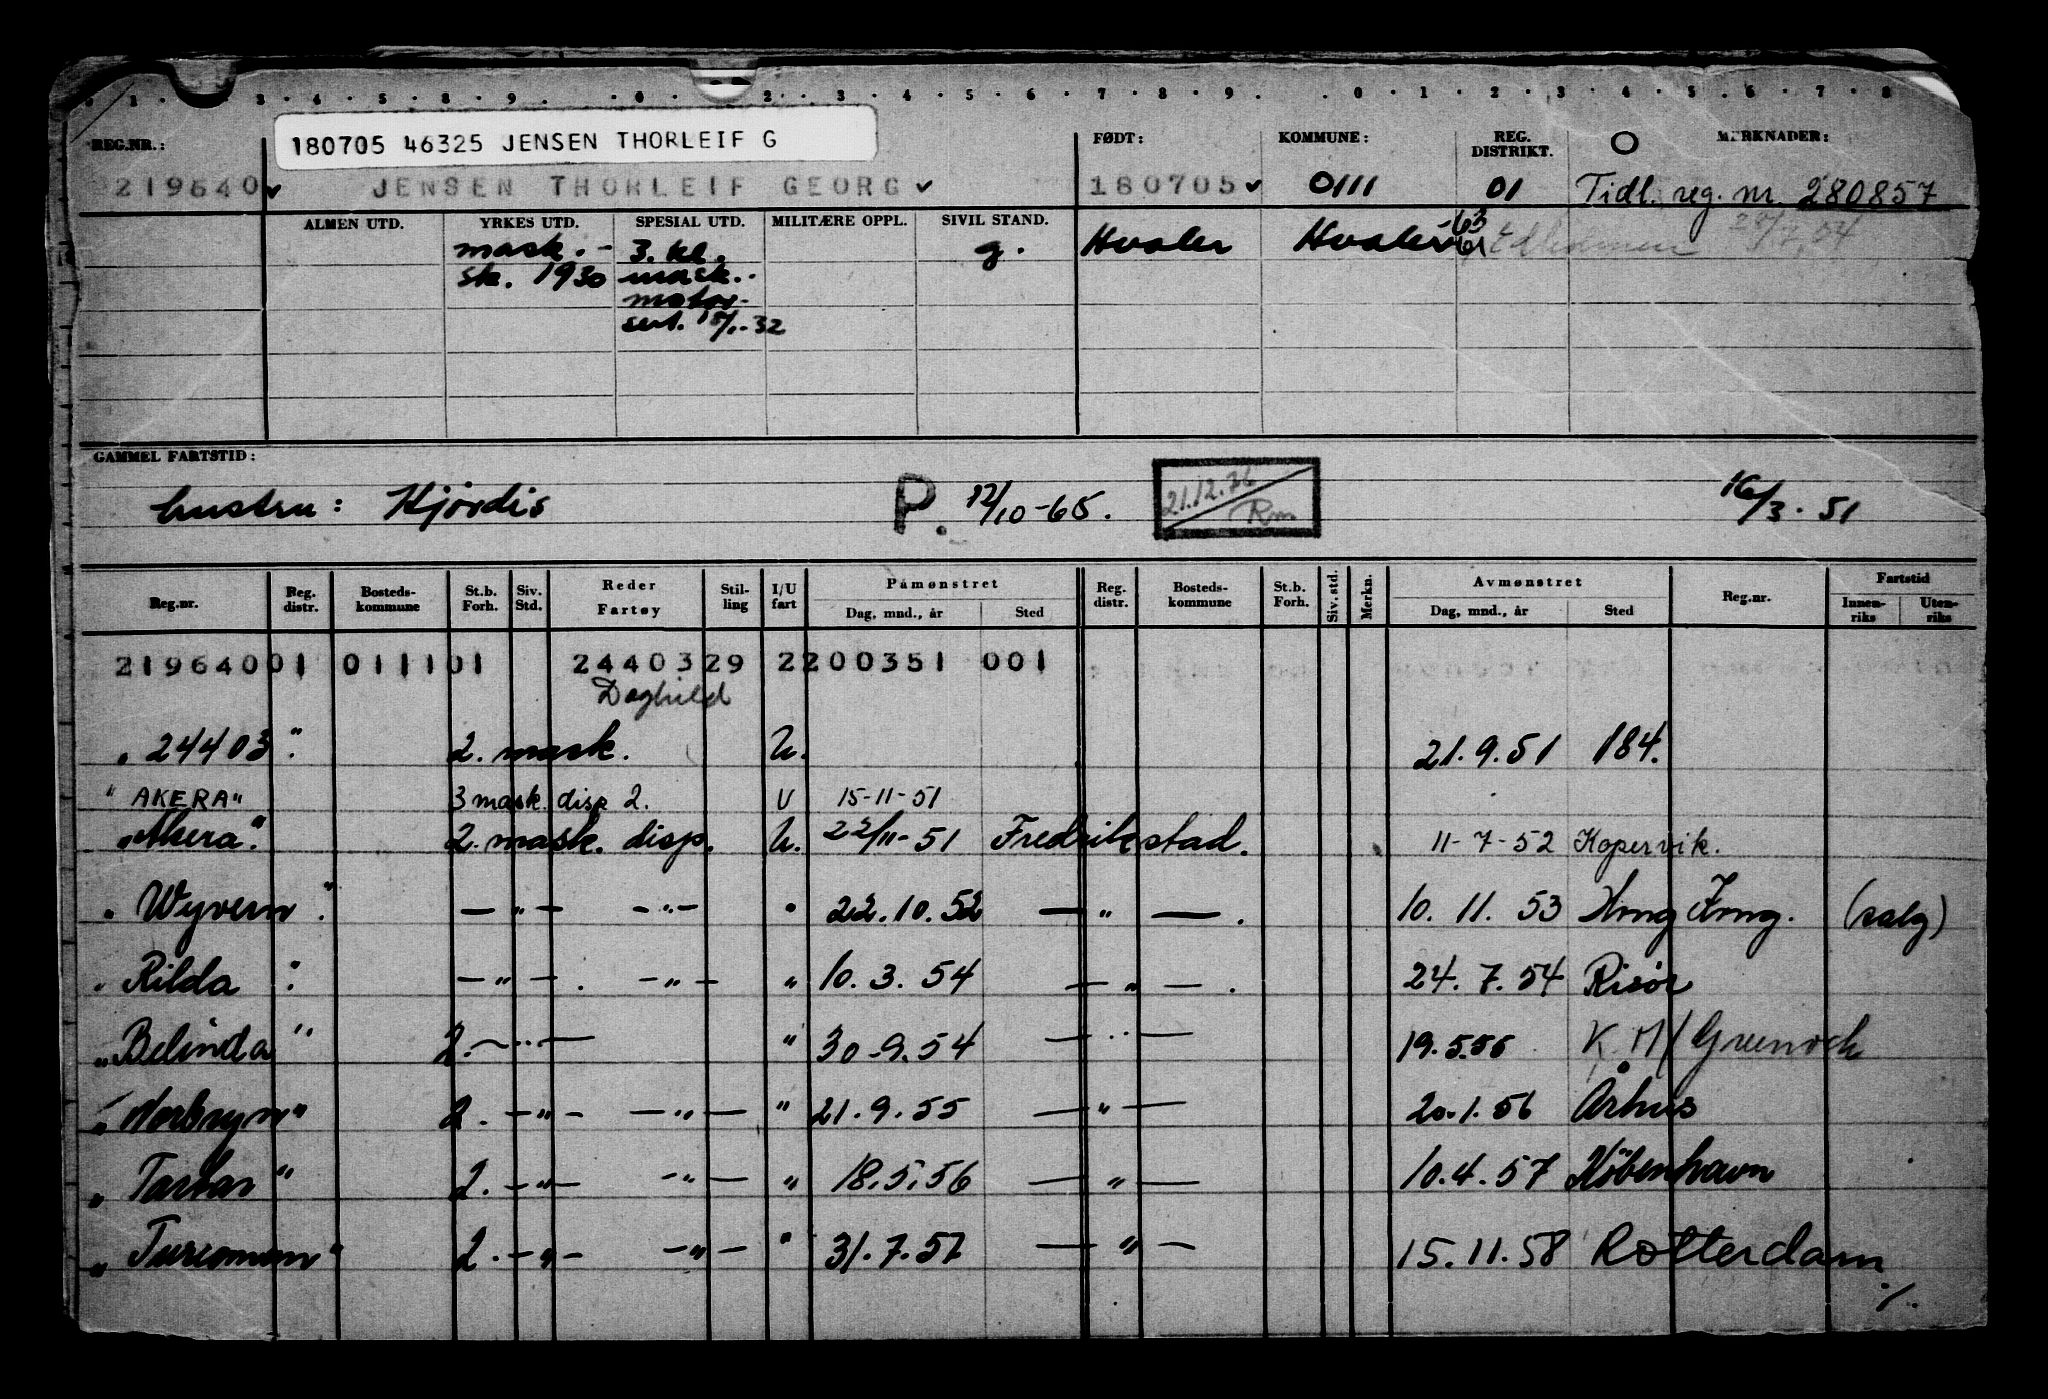 180705 46325 JENSEN THORLEIF G
REG.NR.: FØDT: KOMMUNE: REG. DISTRIKT. O MERKNADER:
219640 JENSEN THORLEIF GEORG 180705 0111 01 Tidl. reg. nr. 280857
ALMEN UTD. YRKES UTD. SPESIAL UTD. MILITÆRE OPPL. SIVIL STAND.
mask.- 3. kl. g. Hvaler Hvaler -63
sk. 1930 mask.-
motor-
sert. -32
GAMMEL FARTSTID:
hustru: Hjørdis P. 12/10-65. 21.12.76 16/3.51
Reg.nr. Reg. distr. Bosteds- kommune St.b. Forh. Siv. Std. Reder Fartøy Stil- ling I/U fart Påmønstret Dag, mnd., år Sted Reg. distr. Bosteds- kommune St.b. Forh. Siv. std. Merkn. Avmønstret Dag, mnd., år Sted Reg.nr. Fartstid Innen- riks Uten- riks
21964001 011101 2440329 2200351 001
Daghild
"24403" 2. mask. U. 21.9.51 184.
"AKERA" 3 mask. disp 2. U 15-11-51
"Akera" 2. mask. disp. U. 22/11-51 Fredrikstad. 11-7-52 Kopervik.
"Wyvern" — " — — " — " 22.10.52 — " — . 10.11.53 Hong Kong. (salg)
"Rilda" — " — . — " — " 10.3.54 — " — . 24.7.54 Risør
"Belinda" 2. — " — " 30-9.54 — " — 19.5.55 K.M/ Greenock
2. — " — — " — " 21.9.55 — " — 20.1.56 Århus
"Tartar" 2. — " — — " — " 18.5.56 — " — 10.4.57 København
"Turcoman" 2. — " — — " — " 31.7.57 — " — 15.11.58 Rotterdam
./.